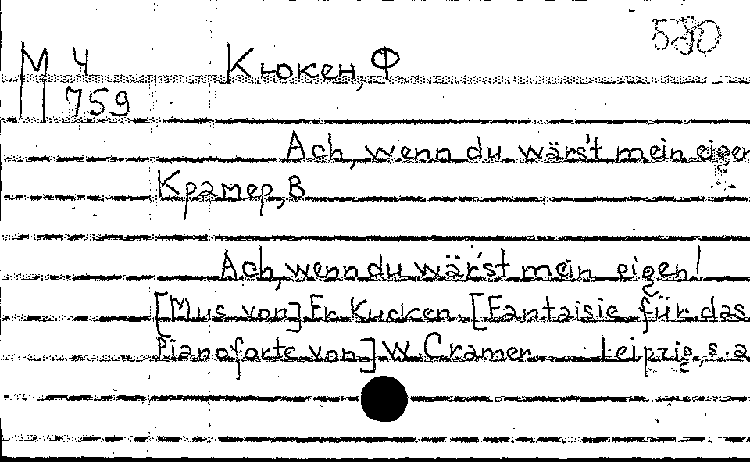 530
М 4 Кюкен, Ф
759
Ach, wenn du wärs't mein eigen
Крамер, В
Ach, wenn du wärs't mein eigen!
[Mus von] Fr. Kucken. [Fantaisie für das
Pianoforte von] W Cramer. Leipzig, s.a